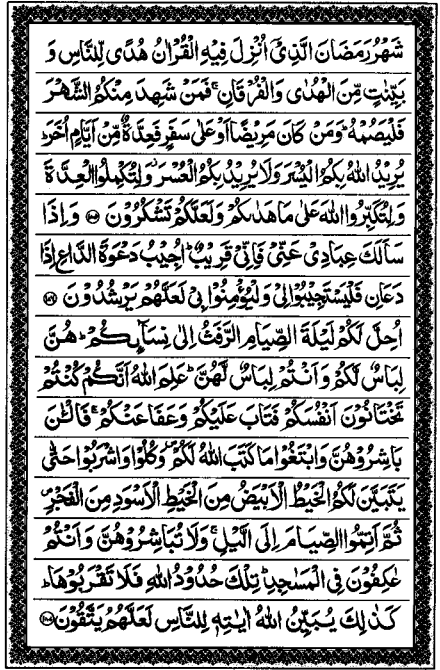 شَهْرُ رَمَضَانَ الَّذِىْٓ اُنْزِلَ فِيْهِ الْقُرْاٰنُ هُدًى لِّلنَّاسِ وَ
بَيِّنٰتٍ مِّنَ الْهُدٰى وَالْفُرْقَانِ ۚ فَمَنْ شَهِدَ مِنْكُمُ الشَّهْرَ
فَلْيَصُمْهُ ؕ وَمَنْ كَانَ مَرِيْضًا اَوْ عَلٰى سَفَرٍ فَعِدَّةٌ مِّنْ اَيَّامٍ اُخَرَ ؕ
يُرِيْدُ اللّٰهُ بِكُمُ الْيُسْرَ وَلَا يُرِيْدُ بِكُمُ الْعُسْرَ ؗ وَلِتُكْمِلُوا الْعِدَّةَ
وَلِتُكَبِّرُوا اللّٰهَ عَلٰى مَا هَدٰىكُمْ وَلَعَلَّكُمْ تَشْكُرُوْنَ ﴿۱۸۵﴾ وَاِذَا
سَاَلَكَ عِبَادِىْ عَنِّىْ فَاِنِّىْ قَرِيْبٌ ؕ اُجِيْبُ دَعْوَةَ الدَّاعِ اِذَا
دَعَانِ فَلْيَسْتَجِيْبُوْا لِىْ وَلْيُؤْمِنُوْا بِىْ لَعَلَّهُمْ يَرْشُدُوْنَ ﴿۱۸۶﴾
اُحِلَّ لَكُمْ لَيْلَةَ الصِّيَامِ الرَّفَثُ اِلٰى نِسَآئِكُمْ ؕ هُنَّ
لِبَاسٌ لَّكُمْ وَاَنْتُمْ لِبَاسٌ لَّهُنَّ ؕ عَلِمَ اللّٰهُ اَنَّكُمْ كُنْتُمْ
تَخْتَانُوْنَ اَنْفُسَكُمْ فَتَابَ عَلَيْكُمْ وَعَفَا عَنْكُمْ ۚ فَالْـٰٔنَ
بَاشِرُوْهُنَّ وَابْتَغُوْا مَا كَتَبَ اللّٰهُ لَكُمْ ۪ وَكُلُوْا وَاشْرَبُوْا حَتّٰى
يَتَبَيَّنَ لَكُمُ الْخَيْطُ الْاَبْيَضُ مِنَ الْخَيْطِ الْاَسْوَدِ مِنَ الْفَجْرِ ۪
ثُمَّ اَتِمُّوا الصِّيَامَ اِلَى الَّيْلِ ۚ وَلَا تُبَاشِرُوْهُنَّ وَاَنْتُمْ
عٰكِفُوْنَ فِى الْمَسٰجِدِ ؕ تِلْكَ حُدُوْدُ اللّٰهِ فَلَا تَقْرَبُوْهَا ؕ
كَذٰلِكَ يُبَيِّنُ اللّٰهُ اٰيٰتِهٖ لِلنَّاسِ لَعَلَّهُمْ يَتَّقُوْنَ ﴿۱۸۷﴾